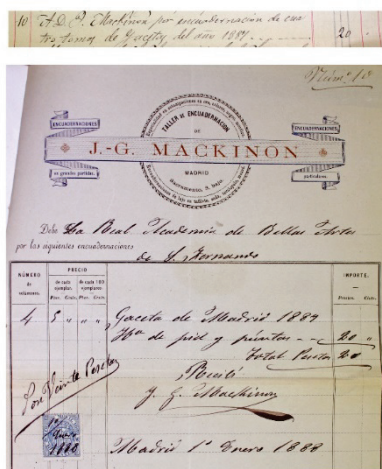 10 A D. J. Mackinon por encuadernacion de cua
tro tomos de Gacetas, del año 1887 20 "
Núm.º 10
ENCUADERNACIONES
en grandes partidas.
TALLER DE ENCUADERNACION
DE
J.-G. MACKINON
MADRID
Sacramento, 5, bajo.
ENCUADERNACIONES
particulares.
Debe La Real Academia de Bellas Artes
por las siguientes encuadernaciones
de S. Fernando
NÚMERO de volúmenes.
PRECIO
de cada ejemplar.
de cada 100 ejemplares.
Ptas. Cénts. Ptas. Cénts.
IMPORTE.
Pesetas Cénts.
4 5 " " " Gaceta de Madrid 1887
Hna de piel y puntas - - 20 "
Total Pesetas 20 "
Son Veinte Pesetas
Recibí
J. G. Mackinon
1º
Enero
1888
Madrid 1º Enero 1888